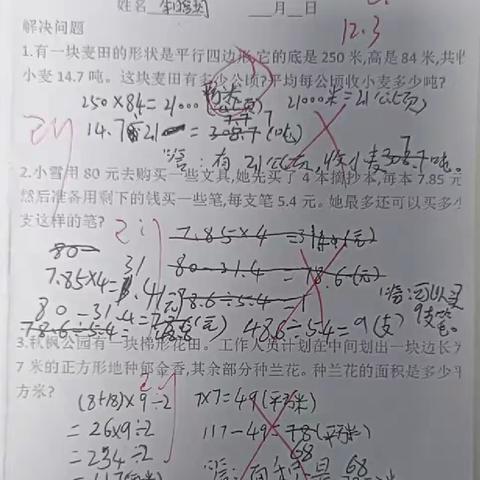 姓名
月 日
12.3
解决问题
1.有一块麦田的形状是平行四边形,它的底是 250 米,高是 84 米,共收
小麦 14.7 吨。这块麦田有多少公顷?平均每公顷收小麦多少吨?
250×84=21000
21000米=21公顷
14.7÷21
(吨)
答:有21公顷,收小麦
2.小雪用 80 元去购买一些文具,她先买了 4 本摘抄本,每本 7.85 元
然后准备用剩下的钱买一些笔,每支 5.4 元。她最多还可以买多少
支这样的笔?
7.85×4=31.4(元)
80-31.4=78.6(元)
7.85×4=31.4(元)
78.6÷5.4
80-31.4=
(元)
48.6÷5.4=9(支)
答:可以买
9支笔。
78.6÷5.4
3.秋枫公园有一块梯形花田。工作人员计划在中间划出一块边长为
7 米的正方形地种郁金香,其余部分种兰花。种兰花的面积是多少平
方米?
(8+18)×9÷2
7×7=49(平方米)
=26×9÷2
117-49=78(平方米)
68
=234÷2
答:面积是68
=117(平方米)